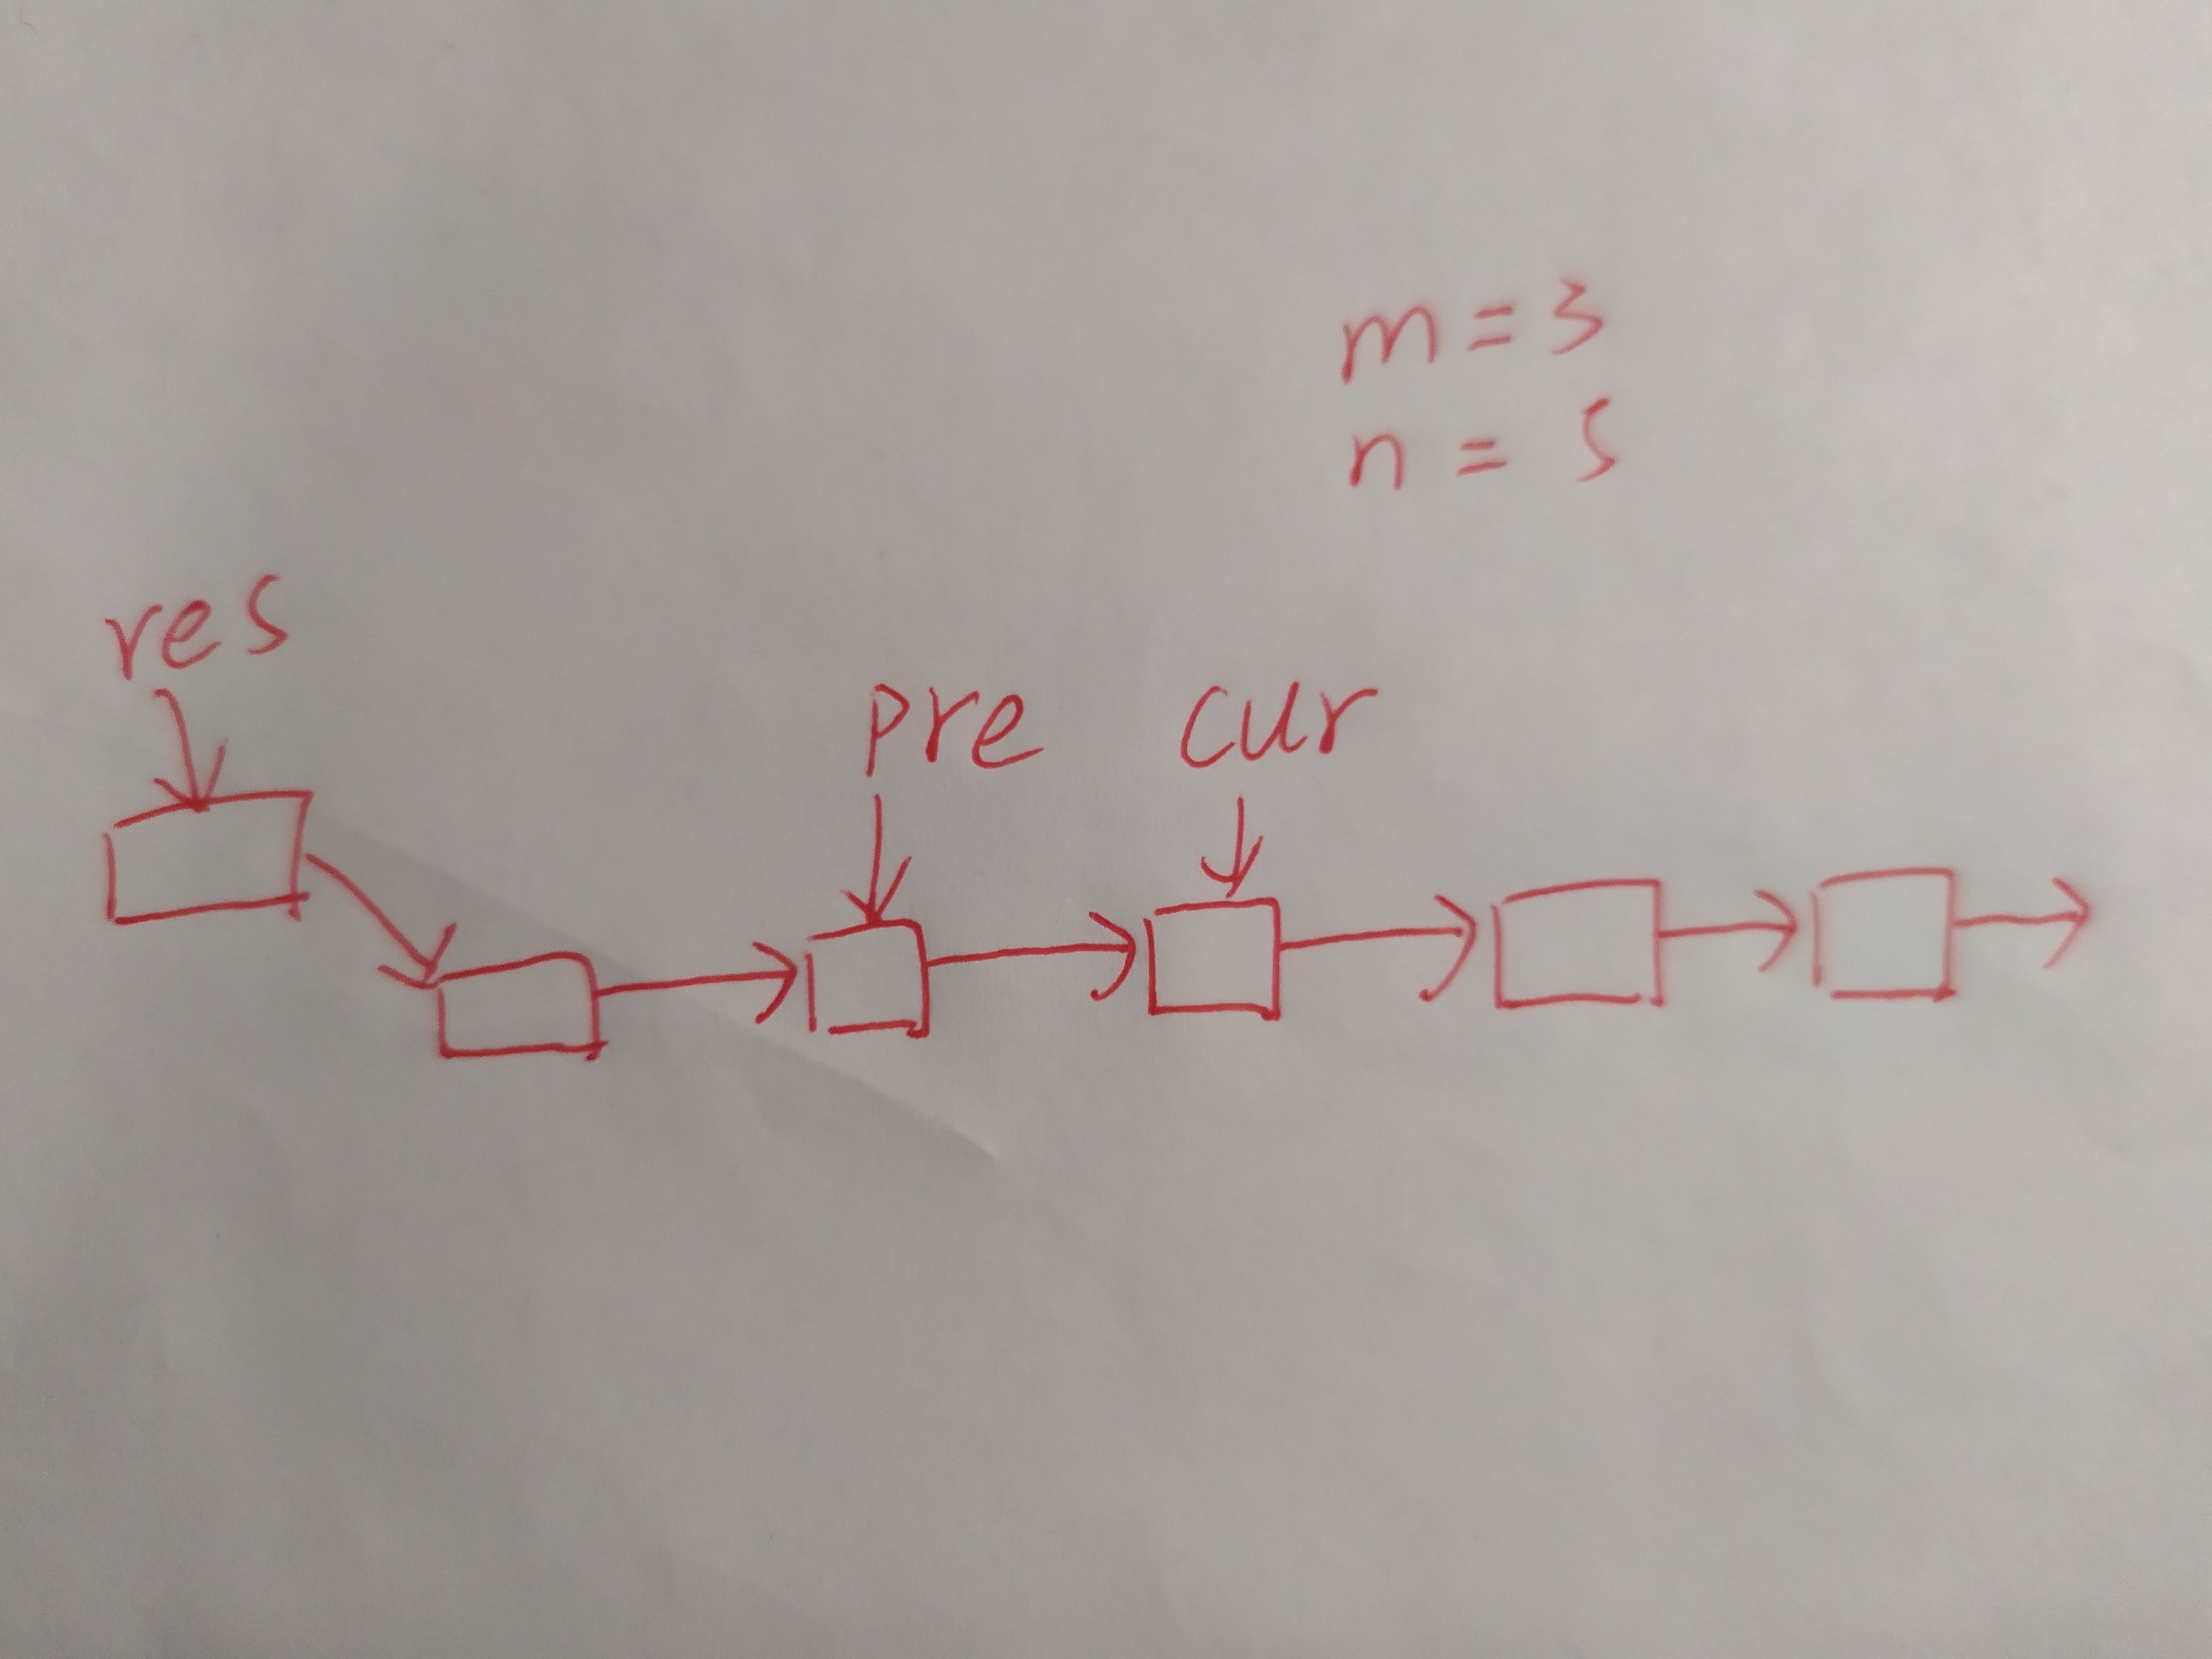 m = 3
n = 5
res
pre cur